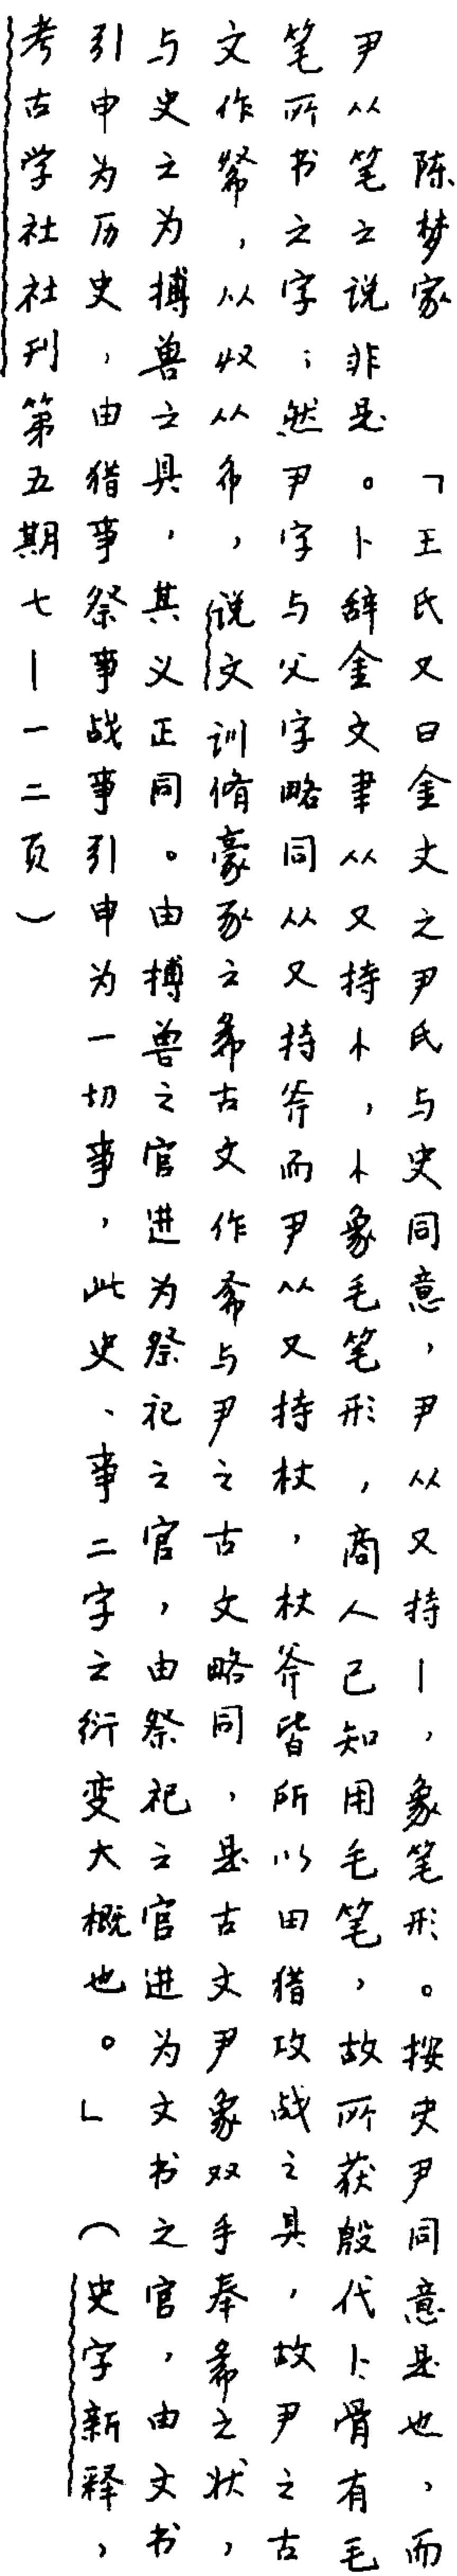 陈梦家　「王氏又曰金文之尹氏与史同意，尹从又持丨，象笔形。按史尹同意是也，而
尹从笔之说非是。卜辞金文聿从又持⺊，⺊象毛笔形，商人已知用毛笔，故所获殷代卜骨有毛
笔所书之字；然尹字与父字略同从又持斧而尹从又持杖，杖斧皆所以田猎攻战之具，故尹之古
文作，从収从希，说文训脩豪豕之㣇古文作与尹之古文略同，是古文尹象双手奉㣇之状，
与史之为搏兽之具，其义正同。由搏兽之官进为祭祀之官，由祭祀之官进为文书之官，由文书
引申为历史，由猎事祭事战事引申为一切事，此史、事二字之衍变大概也。」（史字新释，
考古学社社刊第五期七—一二页）